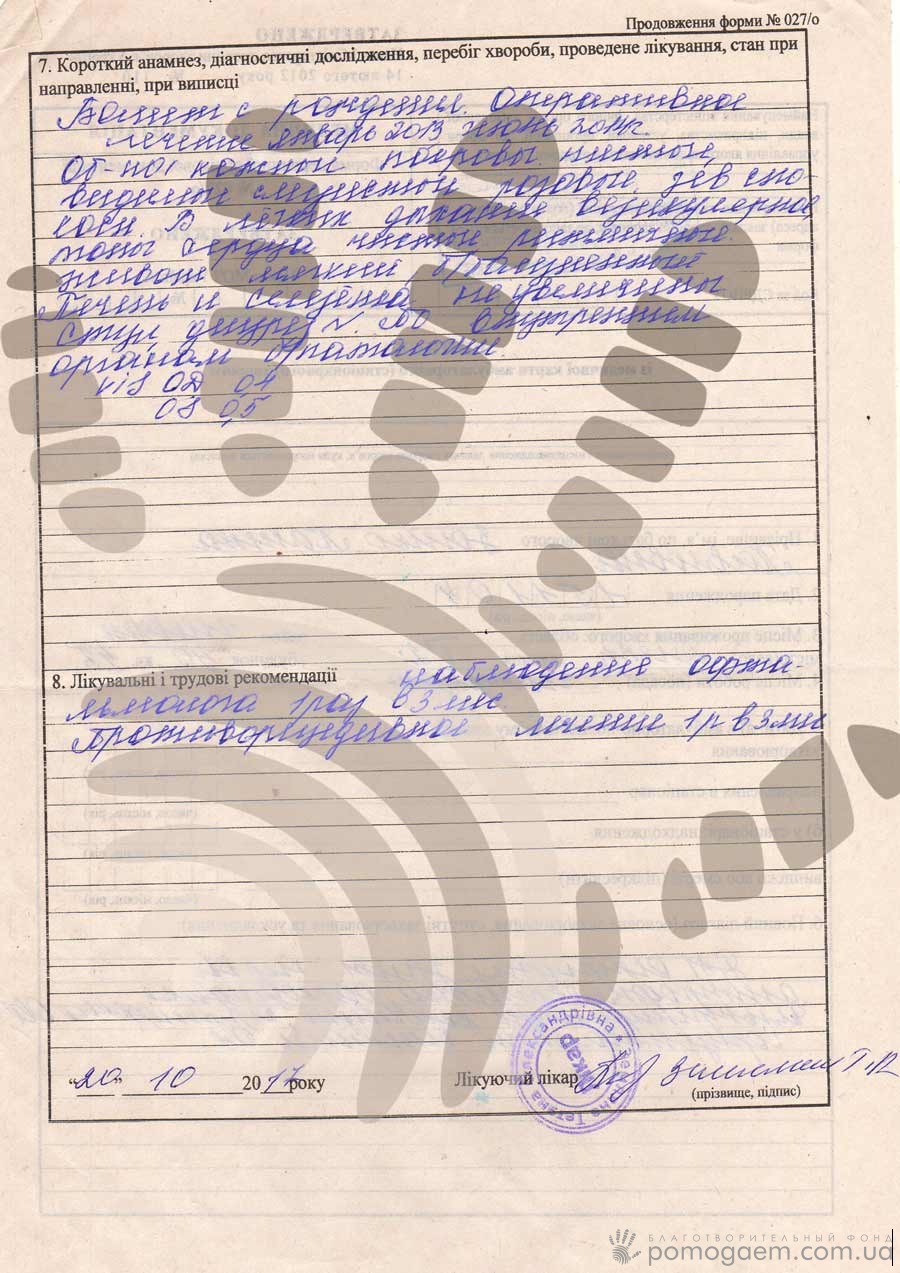 Продовження форми № 027/о
7. Короткий анамнез, діагностичні дослідження, перебіг хвороби, проведене лікування, стан при
направленні, при виписці
Болеет с рождения. Оперативное
лечение январь 2013 июнь 2014г.
Об-но: кожные покровы чистые,
видимые слизистые розовые, зев спо-
коен. В легких дыхание везикулярное,
тоны сердца чистые ритмичные.
живот мягкий б/болезненный
Печень и селезенка не увеличены
стул диурез N. По внутренним
органам б/патологии.
VIS OD 0,4
OS 0,5
8. Лікувальні і трудові рекомендації наблюдение офта
льмолога 1 раз в 3 мес.
Противорецедивное лечение 1 р в 3 мес
"20" 10 2017 року Лікуючий лікар
(прізвище, підпис)
Тетяна Олександрівна
Лікар
БЛАГОТВОРИТЕЛЬНЫЙ ФОНД
pomogaem.com.ua